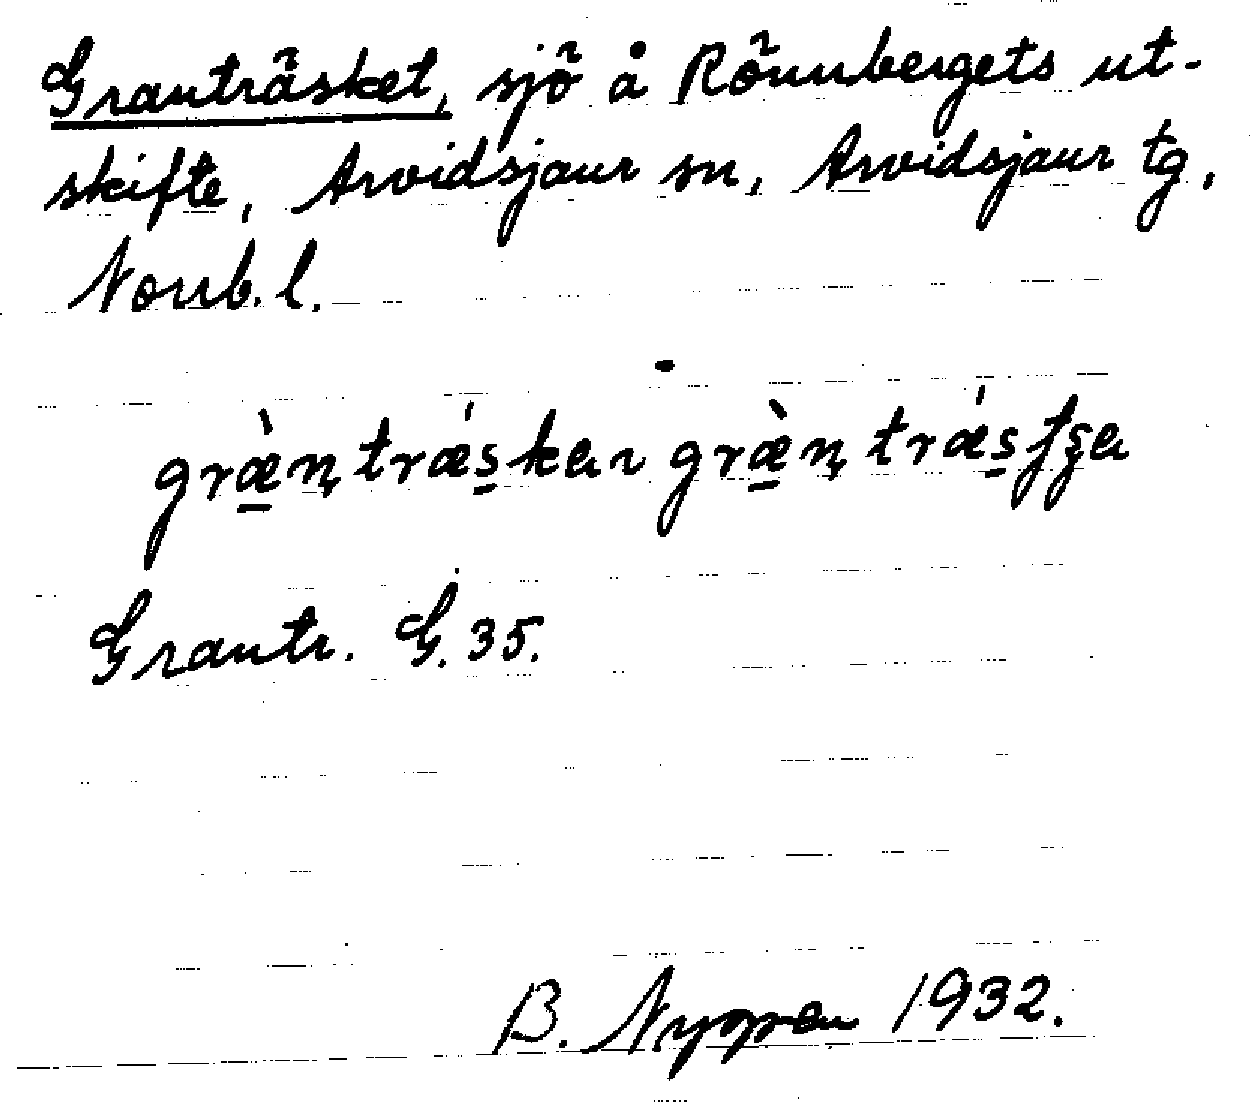 Granträsket, sjö å Rönnbergets ut-
skifte, Arvidsjaur sn, Arvidsjaur tg,
Norrb. l.
græ̀ṇtrǽs̱ka ɩ græ̀ṇtrǽs̱ʃʂa
Grantr. G. 35.
B. Nyman 1932.